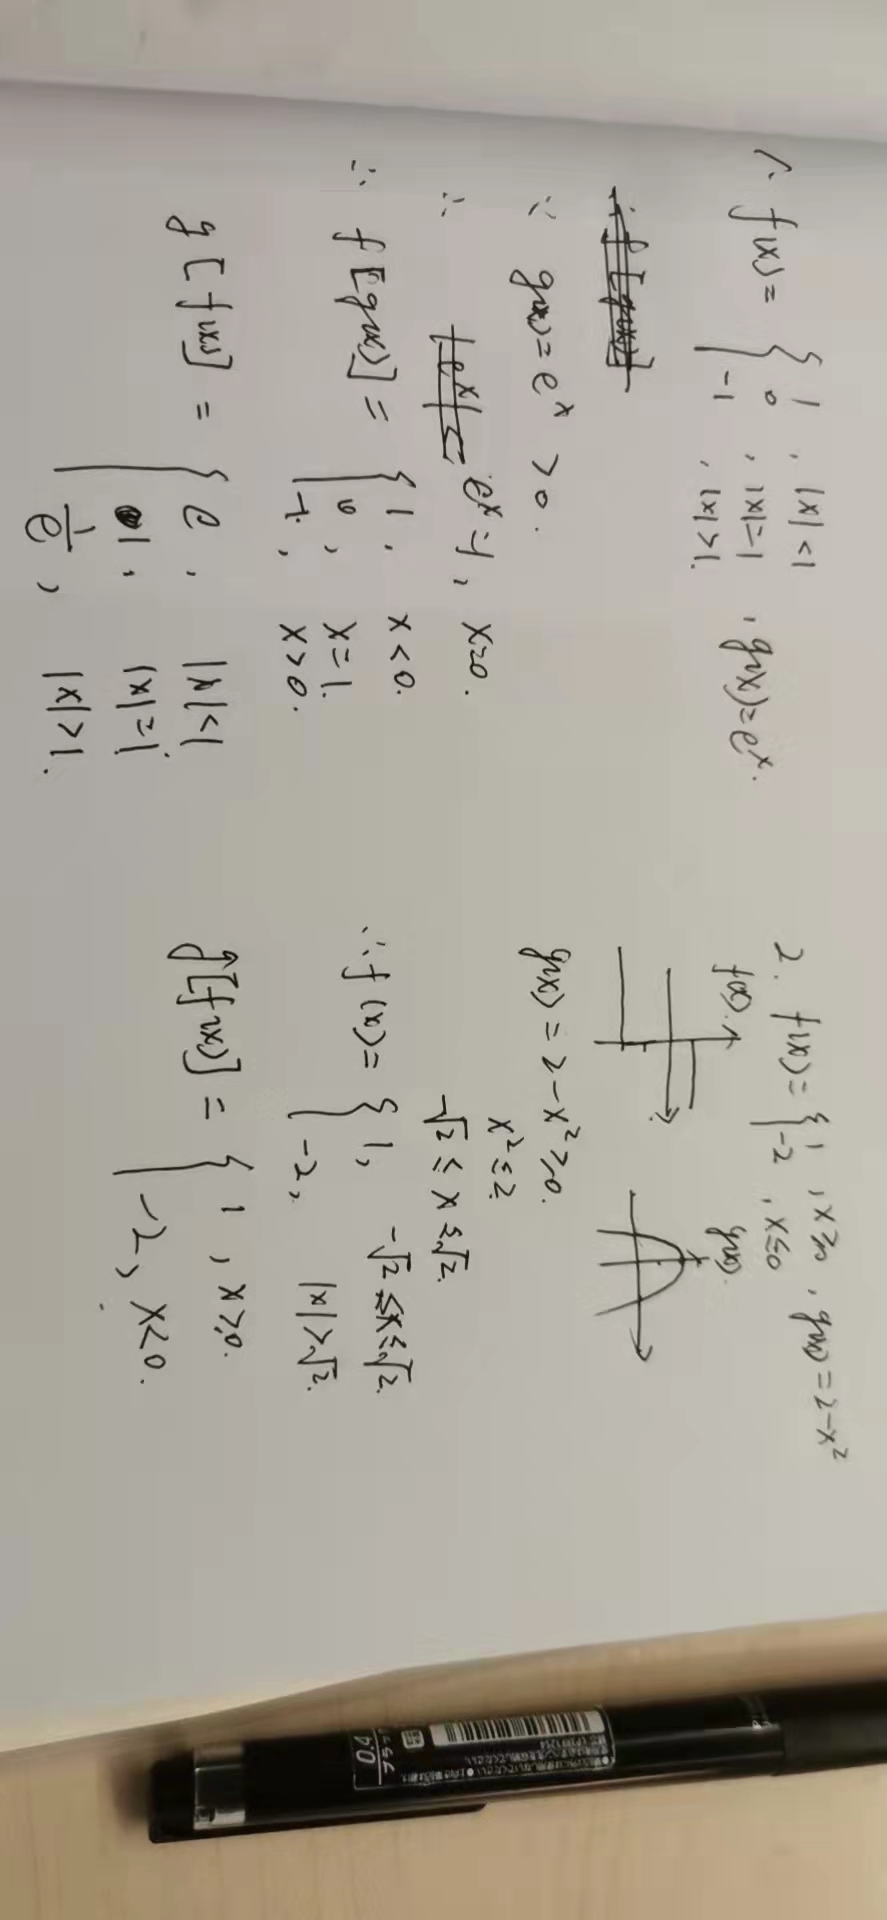 1. f(x) = { 1 , |x|<1
0 , |x|=1 , g(x)=eˣ.
-1 , |x|>1.
∵ g(x)=eˣ >0.
∴ eˣ=1, x=0.
∴ f[g(x)] = { 1 , x<0.
0 , x=1.
-1 , x>0.
g[f(x)] = { e , |x|<1
1 , |x|=1
1/e , |x|>1.
2. f(x) = { 1 , x≥0 , g(x)=2-x²
-2 , x≤0
f(x).
g(x).
g(x)=2-x²≥0.
x²≤2
-√2 ≤ x ≤√2.
∴ f(x) = { 1, -√2≤x≤√2.
-2, |x|>√2.
g[f(x)] = { 1 , x≥0.
-2, x<0.